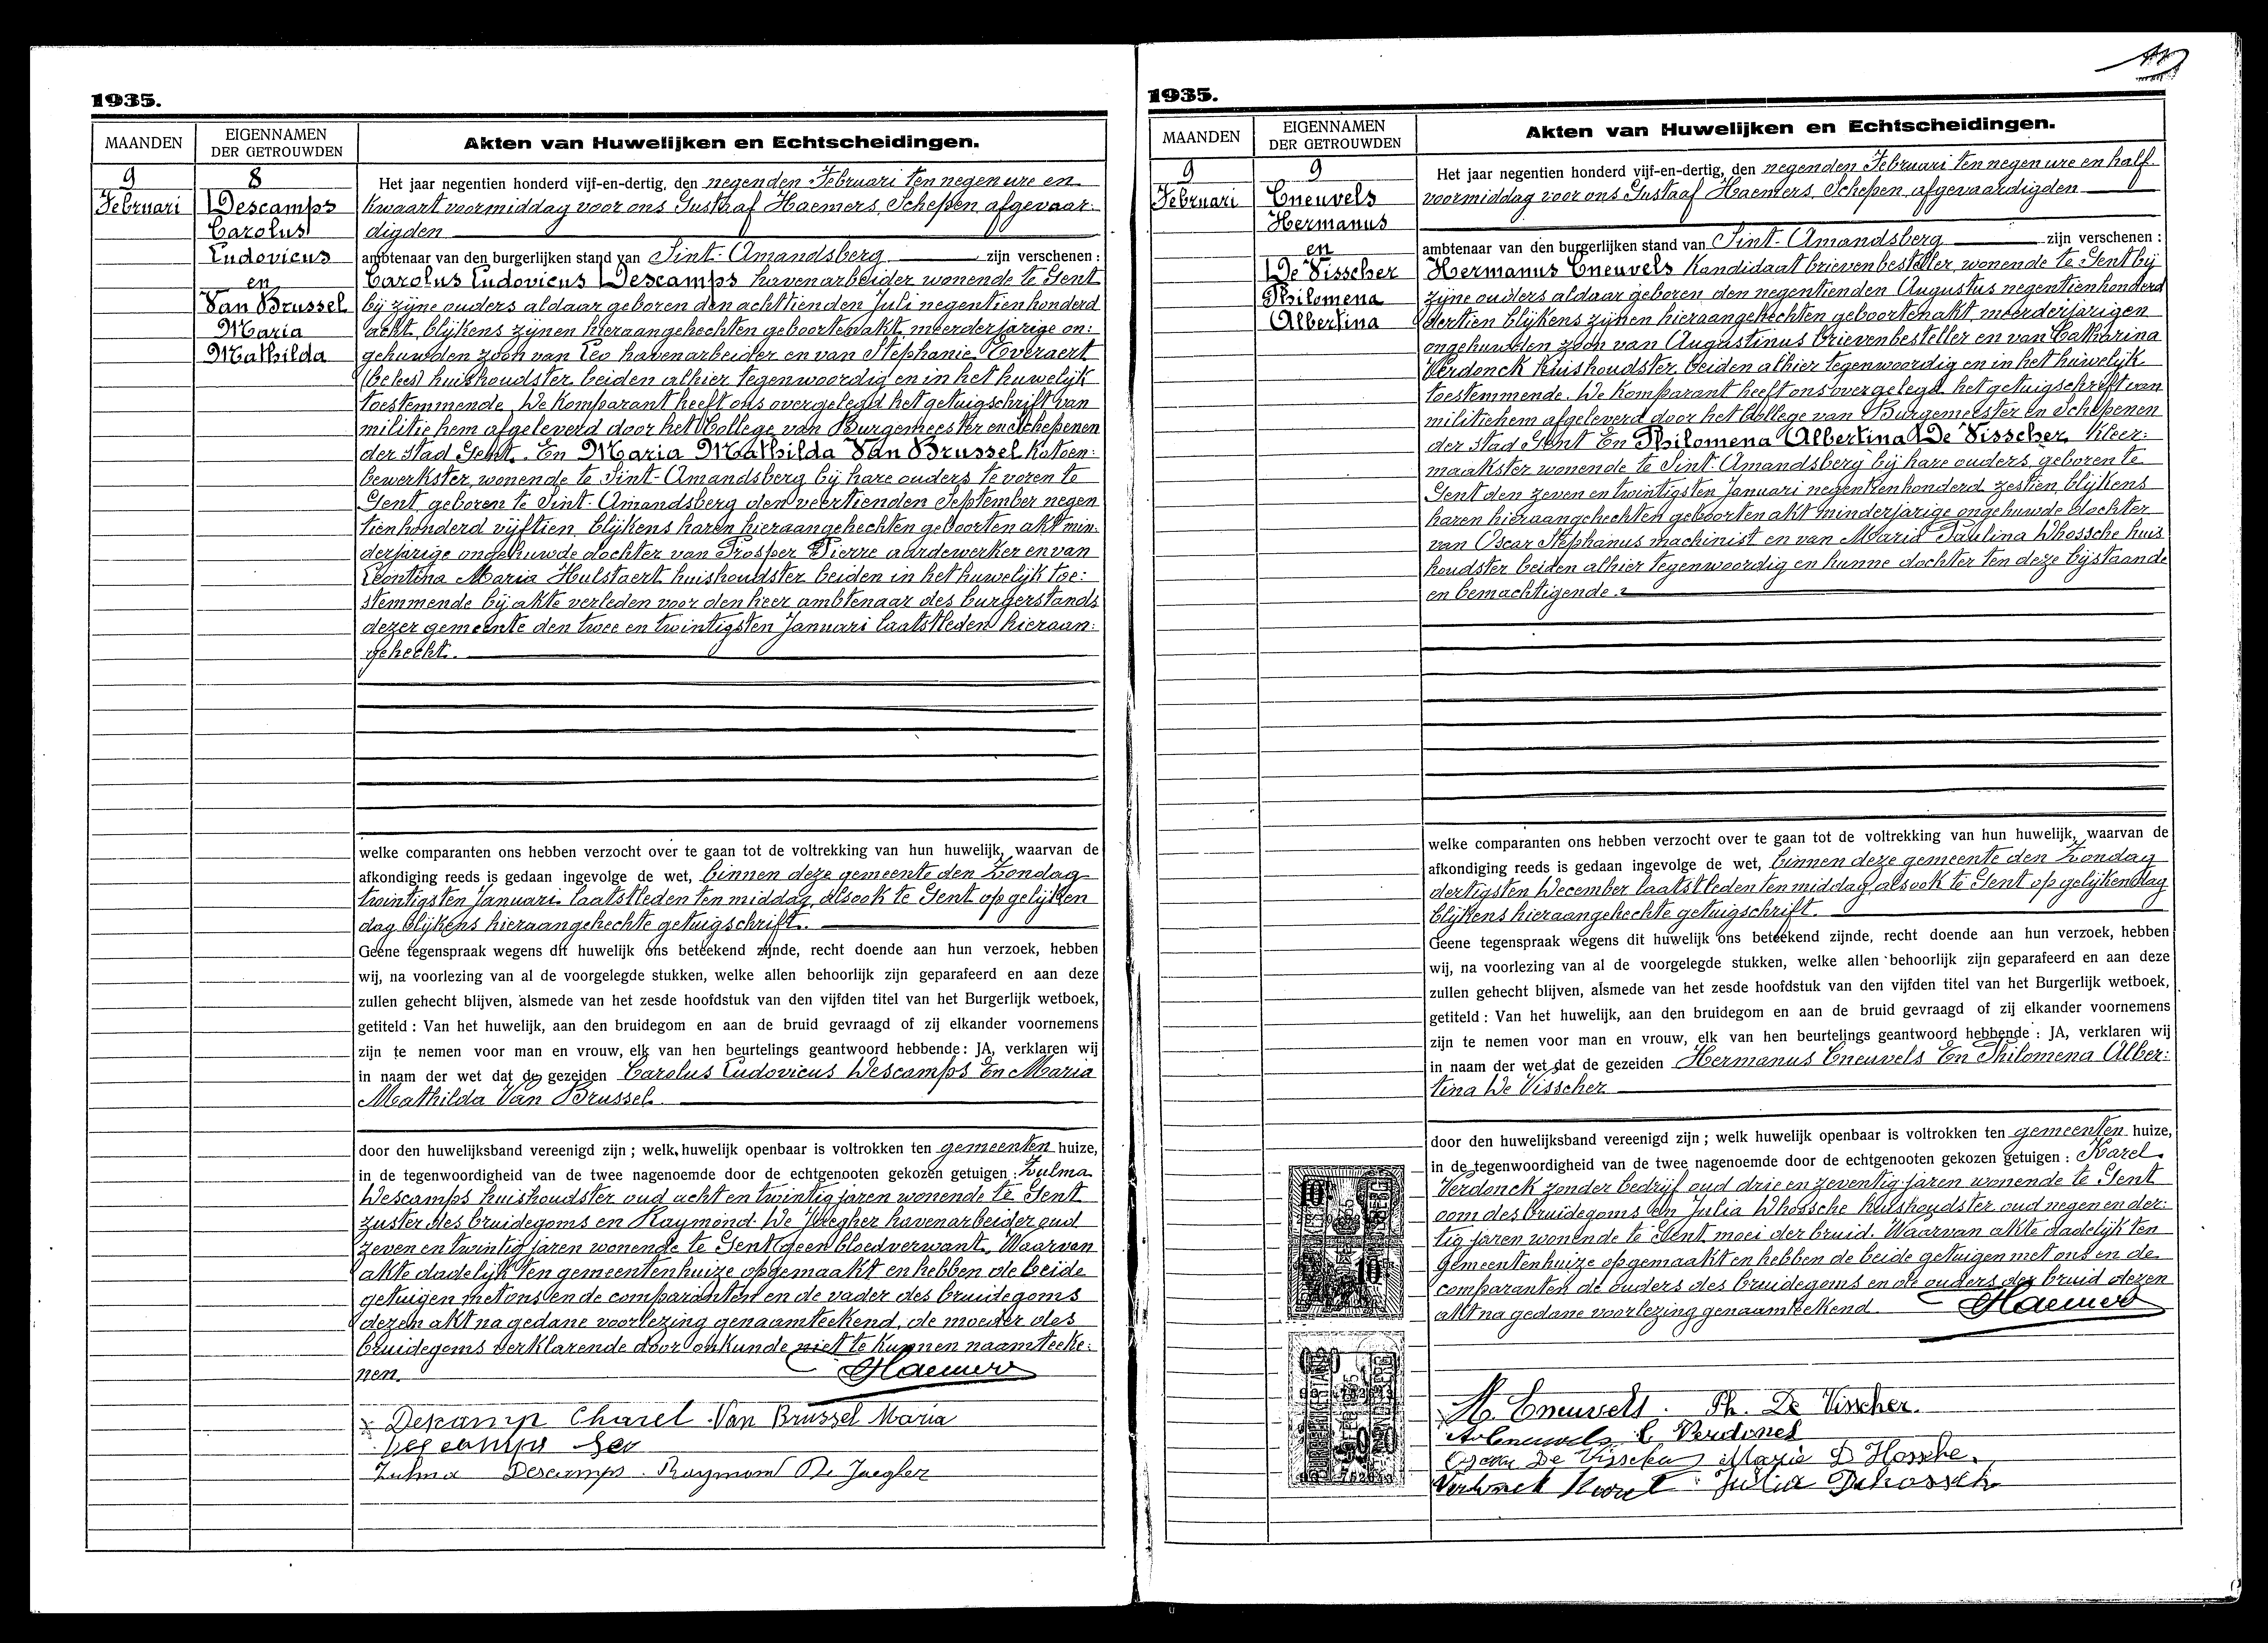 1935.
MAANDEN
EIGENNAMEN
DER GETROUWDEN
Akten van Huwelijken en Echtscheidingen.
9
Februari
8
Descamps
Carolus
Ludovicus
en
Van Brussel
Maria
Mathilda
Het jaar negentien honderd vijf-en-dertig, den negenden Februari ten negen ure en
kwaart voormiddag voor ons Gustaaf Haemers, Schepen, afgevaar:
digden
ambtenaar van den burgerlijken stand van Sint-Amandsberg zijn verschenen :
Carolus Ludovicus Descamps havenarbeider wonende te Gent
bij zijne ouders aldaar geboren den achttienden Juli negentienhonderd
acht, blijkens zijnen hieraangehechten geboortenakt, meerderjarige on:
gehuwden zoon van Leo havenarbeider en van Stephanie Everaert
huishoudster, beiden alhier tegenwoordig en in het huwelijk
toestemmende. De Komparant heeft ons overgelegd het getuigschrift van
militie hem afgeleverd door het College van Burgemeester en Schepenen
der stad Gent. En Maria Mathilda Van Brussel Katoen:
bewerkster, wonende te Sint-Amandsberg bij hare ouders te voren te
Gent, geboren te Sint-Amandsberg den veertienden September negen
tienhonderd vijftien, blijkens haren hieraangehechten geboorten akt min:
derjarige ongehuwde dochter van Prosper Pierre aardewerker en van
Leontina Maria Hulstaert huishoudster beiden in het huwelijk toe:
stemmende bij akte verleden voor den heer ambtenaar des burgerstands
dezer gemeente den twee en twintigsten Januari laatstleden hieraan:
gehecht.
welke comparanten ons hebben verzocht over te gaan tot de voltrekking van hun huwelijk, waarvan de
afkondiging reeds is gedaan ingevolge de wet, binnen deze gemeente den Zondag
twintigsten Januari laatstleden ten middag, alsook te Gent op gelijken
dag blijkens hieraangehechte getuigschrift.
Geene tegenspraak wegens dit huwelijk ons beteekend zijnde, recht doende aan hun verzoek, hebben
wij, na voorlezing van al de voorgelegde stukken, welke allen behoorlijk zijn geparafeerd en aan deze
zullen gehecht blijven, alsmede van het zesde hoofdstuk van den vijfden titel van het Burgerlijk wetboek,
getiteld : Van het huwelijk, aan den bruidegom en aan de bruid gevraagd of zij elkander voornemens
zijn te nemen voor man en vrouw, elk van hen beurtelings geantwoord hebbende : JA, verklaren wij
in naam der wet dat de gezeiden Carolus Ludovicus Descamps En Maria
Mathilda Van Brussel
door den huwelijksband vereenigd zijn ; welk huwelijk openbaar is voltrokken ten gemeenten huize,
in de tegenwoordigheid van de twee nagenoemde door de echtgenooten gekozen getuigen : Zulma
Descamps huishoudster oud acht en twintig jaren wonende te Gent
zuster des bruidegoms en Raymond De Jaegher havenarbeider oud
zeven en twintig jaren wonende te Gent geen bloedverwant. Waarvan
akte dadelijk ten gemeentenhuize opgemaakt en hebben de beide
getuigen met ons en de comparanten en de vader des bruidegoms
dezen akt na gedane voorlezing genaamteekend, de moeder des
bruidegoms verklarende door onkunde niet te kunnen naamteeke:
nen.
Haemers
Descamp Charel Van Brussel Maria
Descamps Leo
Zulma Descamps Raymond De Jaegher
1935.
MAANDEN
EIGENNAMEN
DER GETROUWDEN
Akten van Huwelijken en Echtscheidingen.
9
Februari
9
Cneuvels
Hermanus
en
De Visscher
Philomena
Albertina
Het jaar negentien honderd vijf-en-dertig, den negenden Februari ten negen ure en half
voormiddag voor ons Gustaaf Haemers, Schepen, afgevaardigden
ambtenaar van den burgerlijken stand van Sint-Amandsberg zijn verschenen :
Hermanus Cneuvels Kandidaat brievenbesteller, wonende te Gent bij
zijne ouders aldaar geboren den negentienden Augustus negentienhonderd
dertien blijkens zijnen hieraangehechten geboortenakt meerderjarigen
ongehuwden zoon van Augustinus brievenbesteller en van Catharina
Verdonck huishoudster, beiden alhier tegenwoordig en in het huwelijk
toestemmende. De Komparant heeft ons overgelegd het getuigschrift van
militie hem afgeleverd door het College van Burgemeester en Schepenen
der stad Gent En Philomena Albertina De Visscher, Kleer:
maakster wonende te Sint-Amandsberg bij hare ouders, geboren te
Gent den zeven en twintigsten Januari negentienhonderd zestien, blijkens
haren hieraangehechten geboortenakt minderjarige ongehuwde dochter
van Oscar Stephanus machinist en van Maria Paulina Dhossche huis
houdster beiden alhier tegenwoordig en hunne dochter ten deze bijstaande
en bemachtigende.
welke comparanten ons hebben verzocht over te gaan tot de voltrekking van hun huwelijk, waarvan de
afkondiging reeds is gedaan ingevolge de wet, binnen deze gemeente den Zondag
dertigsten December laatstleden ten middag, alsook te Gent op gelijken dag
blijkens hieraangehechte getuigschrift.
Geene tegenspraak wegens dit huwelijk ons beteekend zijnde, recht doende aan hun verzoek, hebben
wij, na voorlezing van al de voorgelegde stukken, welke allen behoorlijk zijn geparafeerd en aan deze
zullen gehecht blijven, alsmede van het zesde hoofdstuk van den vijfden titel van het Burgerlijk wetboek,
getiteld : Van het huwelijk, aan den bruidegom en aan de bruid gevraagd of zij elkander voornemens
zijn te nemen voor man en vrouw, elk van hen beurtelings geantwoord hebbende : JA, verklaren wij
in naam der wet dat de gezeiden Hermanus Cneuvels En Philomena Alber:
tina De Visscher
door den huwelijksband vereenigd zijn ; welk huwelijk openbaar is voltrokken ten gemeenten huize,
in de tegenwoordigheid van de twee nagenoemde door de echtgenooten gekozen getuigen : Karel
Verdonck zonder bedrijf oud drie en zeventig jaren wonende te Gent
oom des bruidegoms en Julia Dhossche huishoudster oud negen en der:
tig jaren wonende te Gent moei der bruid. Waarvan akte dadelijk ten
gemeentenhuize opgemaakt en hebben de beide getuigen met ons en de
comparanten de ouders des bruidegoms en de ouders der bruid dezen
akt na gedane voorlezing genaamteekend.
Haemers
H. Cneuvels. Ph. De Visscher.
A Cneuvels C Verdonck
Oscar De Visscher Maria D Hossche.
Verdonck Karel Julia Dhossche